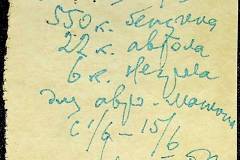 550 к. бензина
22 к. автола
6 к. негрола
для авто-машины
с 1/6 – 15/6